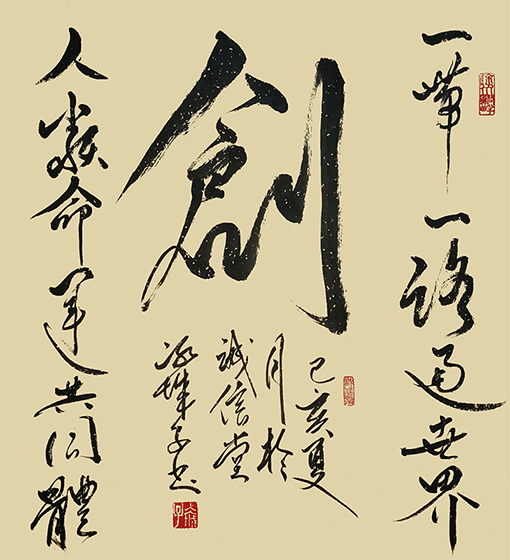 一帶一路通世界
創
人類命運共同體
己亥夏
月於
誠信堂